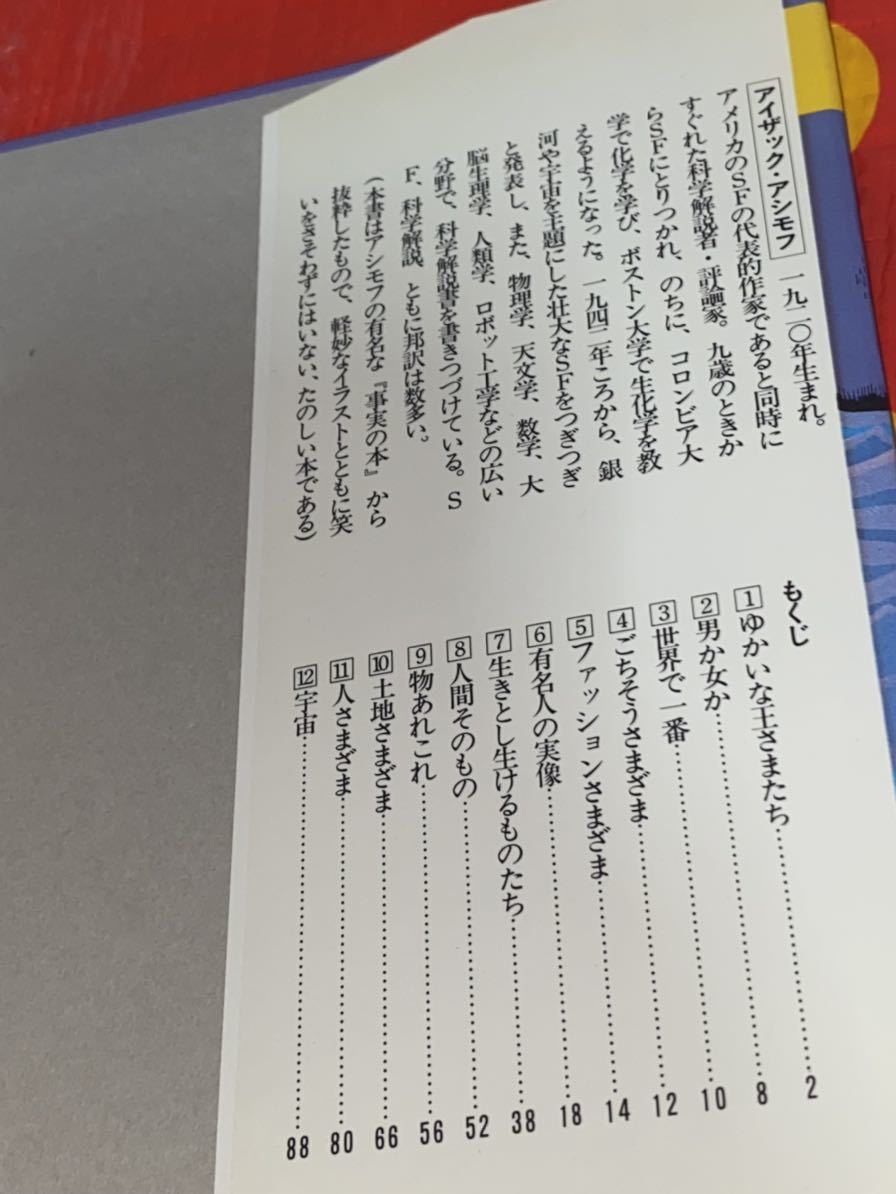 アイザック・アシモフ 一九二〇年生まれ。
アメリカのSFの代表的作家であると同時に
すぐれた科学解説者・評論家。九歳のときか
らSFにとりつかれ、のちに、コロンビア大
学で化学を学び、ボストン大学で生化学を教
えるようになった。一九四二年ころから、銀
河や宇宙を主題にした壮大なSFをつぎつぎ
と発表し、また、物理学、天文学、数学、大
脳生理学、人類学、ロボット工学などの広い
分野で、科学解説書を書きつづけている。S
F、科学解説、ともに邦訳は数多い。
(本書はアシモフの有名な『事実の本』から
抜粋したもので、軽妙なイラストとともに笑
いをさそわずにはいない、たのしい本である)
もくじ
1 ゆかいな王さまたち……2
2 男か女か……8
3 世界で一番……10
4 ごちそうさまざま……12
5 ファッションさまざま……14
6 有名人の実像……18
7 生きとし生けるものたち……38
8 人間そのもの……52
9 物あれこれ……56
10 土地さまざま……66
11 人さまざま……80
12 宇宙……88